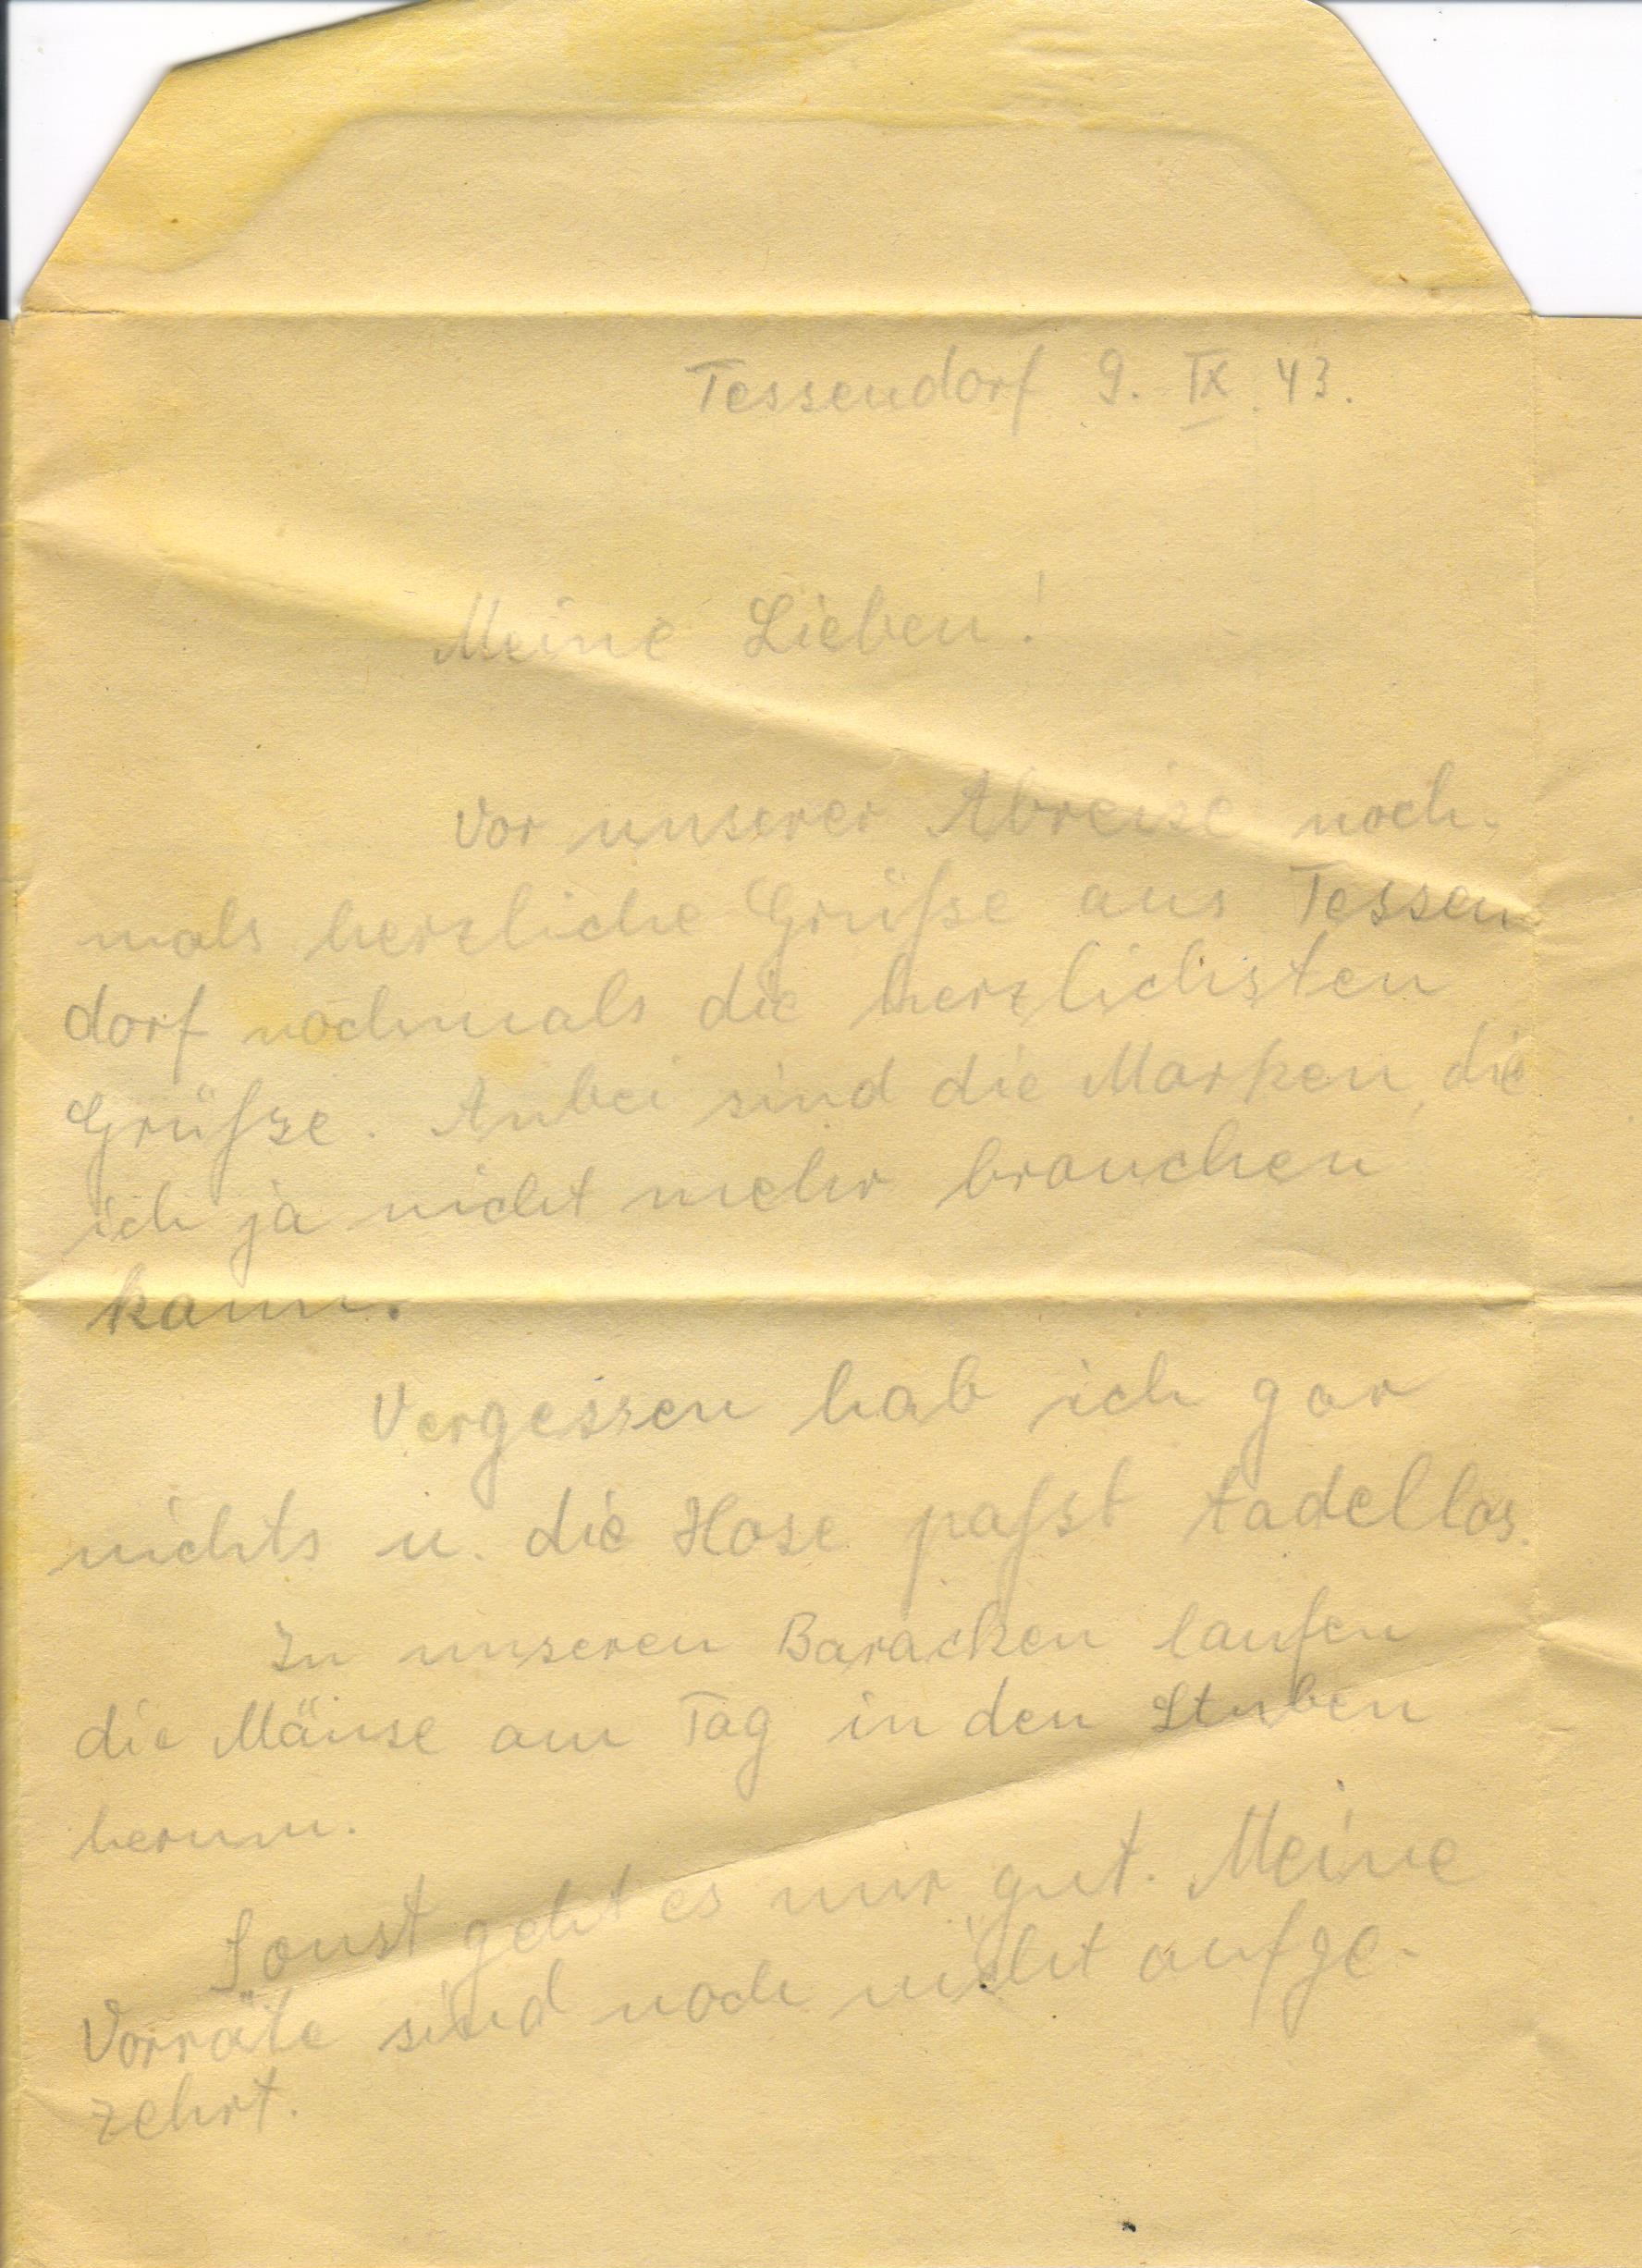 Tessendorf 9. IX. 43.
Meine Lieben!
Vor unserer Abreise noch-
mals herzliche Grüße aus Tessen
dorf nochmals die herzlichsten
Grüße. Anbei sind die Marken, die
ich ja nicht mehr brauchen
kann.
Vergessen hab ich gar
nichts u. die Hose paßt tadellos.
In unseren Baracken laufen
die Mäuse am Tag in den Stuben
herum.
Sonst geht es mir gut. Meine
Vorräte sind noch nicht aufge-
zehrt.